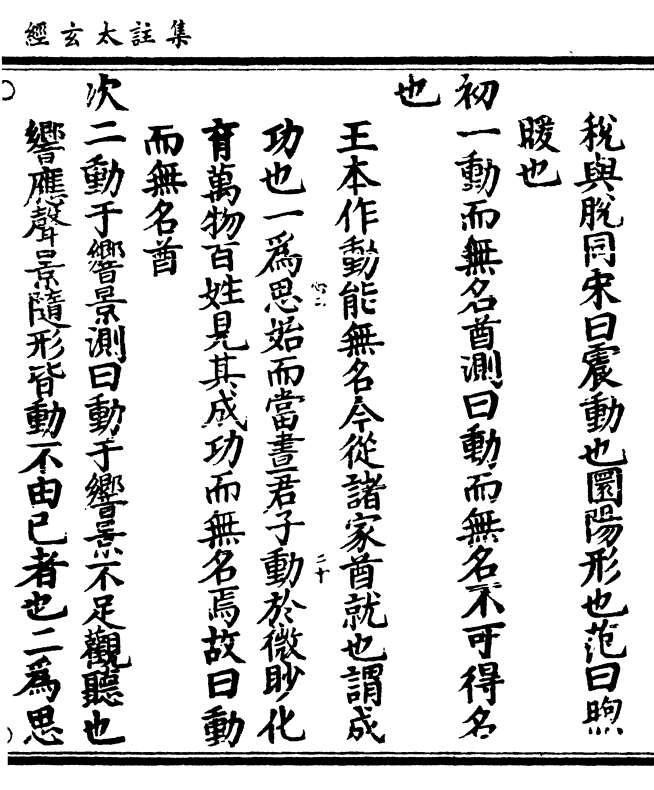 集註太玄經
稅與脫同宋曰震動也圜陽形也范曰煦
暖也
初一動而無名酋測曰動而無名不可得名
也
王本作動能無名今從諸家酋就也謂成
心二
二十
功也一為思始而當晝君子動於微眇化
育萬物百姓見其成功而無名焉故曰動
而無名酋
次二動于響景測曰動于響景不足觀聽也
響應聲景隨形皆動不由已者也二為思